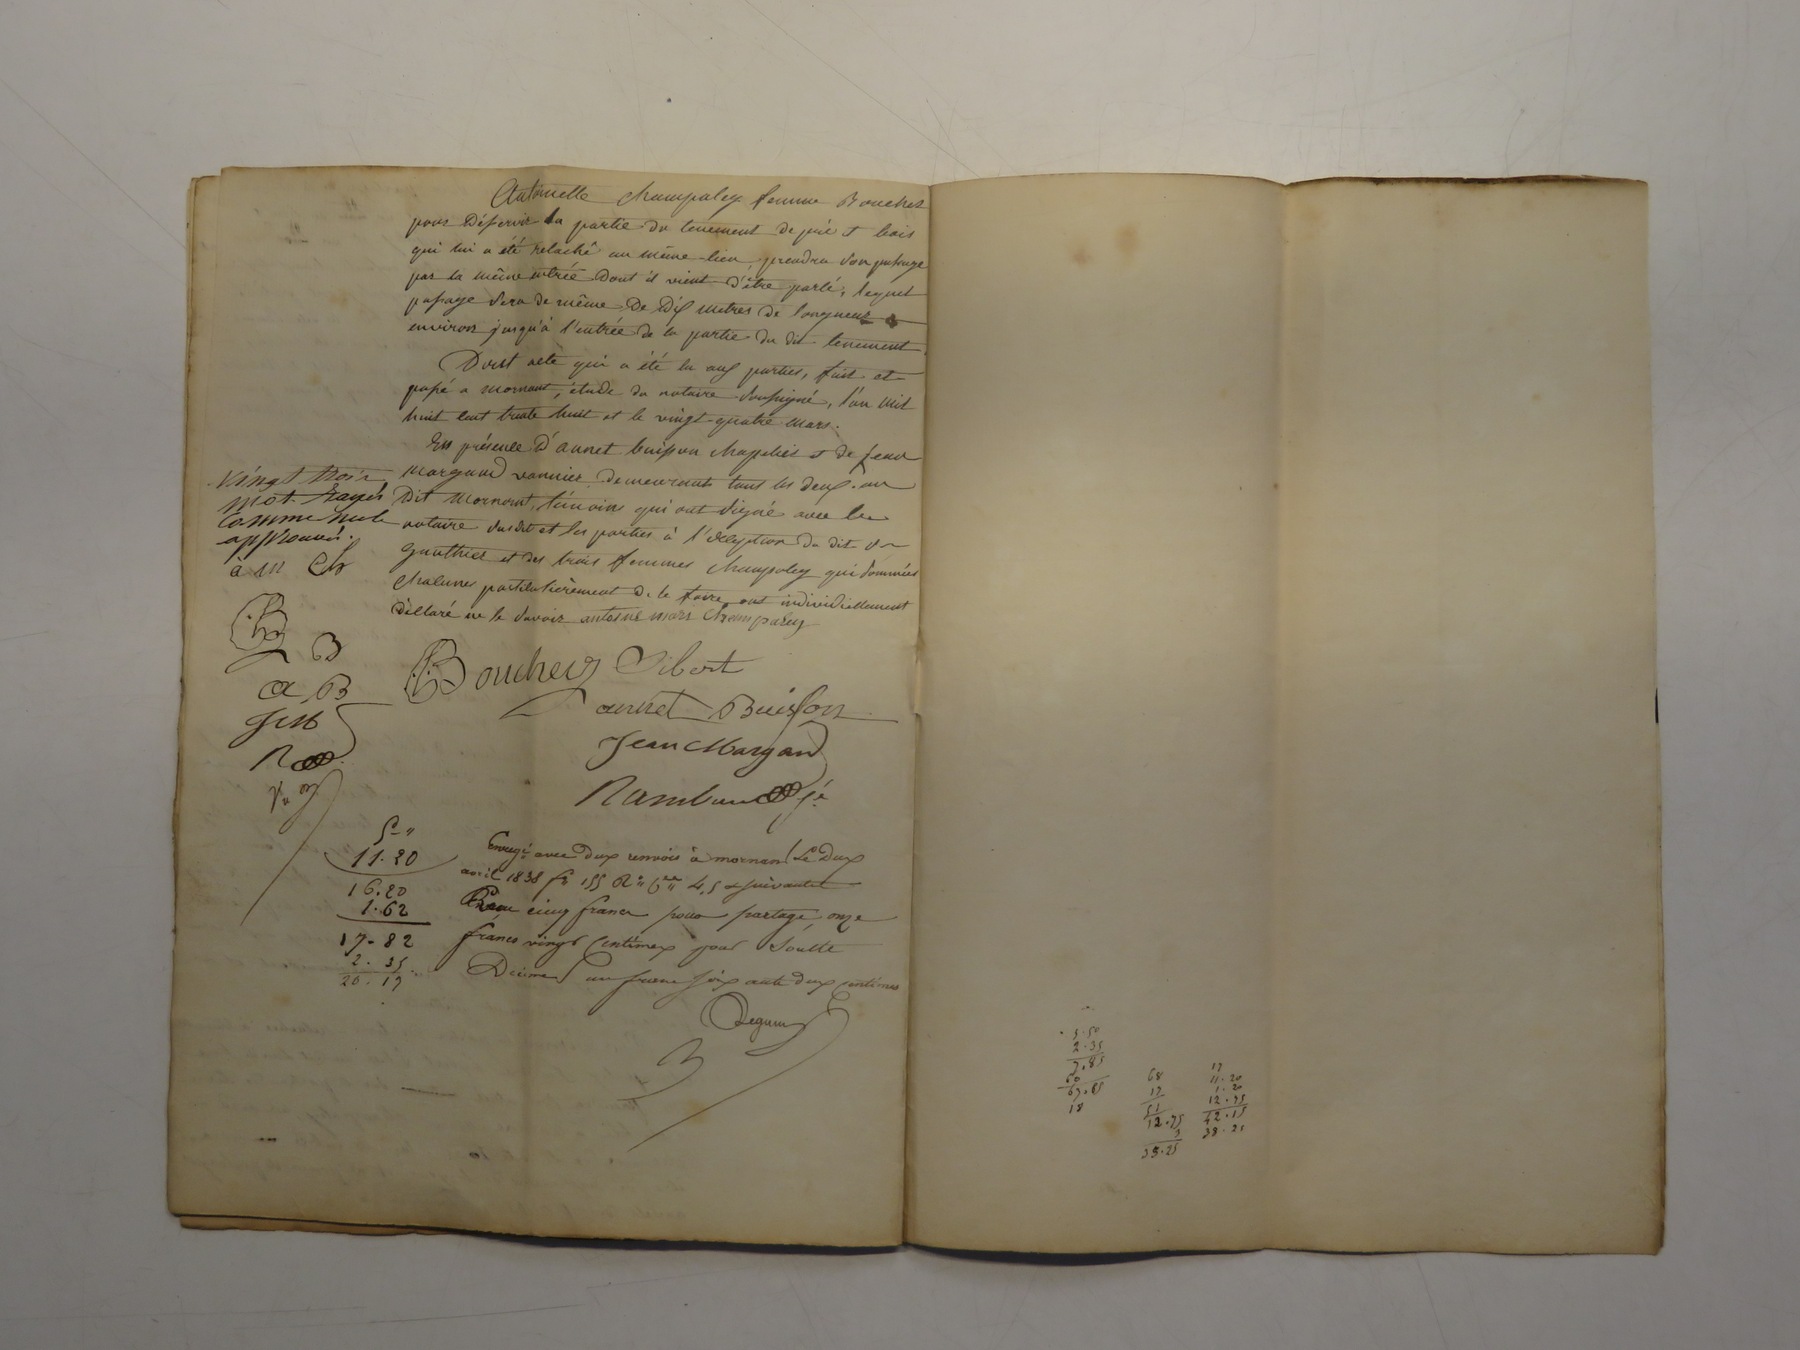 Antoinette champaley femme Bouchez
pour Déservir la partie du tenement de pré et bois
qui lui a été relaché au même lieu prendra son passage
par la même entrée Dont il vient d'être parlé, lequel
passage sera de même De Dix metres de longueur
environ jusqu'à l'entrée de la partie du dit tenement
Dont acte qui a été lu aux parties, fait et
passé a mornant, étude du notaire soussigné, l'an mil
huit cent trente huit et le vingt-quatre mars.
En présence D'annet buisson chapelier et de jean
margand vannier, demeurants tous les deux au
Dit Mornant, témoins qui ont signé avec le
notaire susdit et les parties à l'exception du dit
gauthier et des trois femmes champaley qui sommées
chacunes particulièrement de le faire ont individuellement
déclaré ne le savoir antoine mari Champaley
Vingt trois
mot Rayés
comme nul
approuvé.
a m Ch
B
a B
J M
Bouchez Sibert
annet Buisson
Jean Margand
5 "
11.20
16.20
1.62
17.82
2.35
20.17
Enregé avec deux renvois à mornant Le Deux
avril 1838 f° 155 R° Cses 4, 5 et suivantes
Reçu cinq francs pour partage onze
francs vingt Centimes pour Soulte
Décime un franc soixante deux centimes
5.50
2.35
7.85
60
67.85
18
68
17
51
12.75
3
38.25
17
11.20
1.20
12.75
42.15
38.25